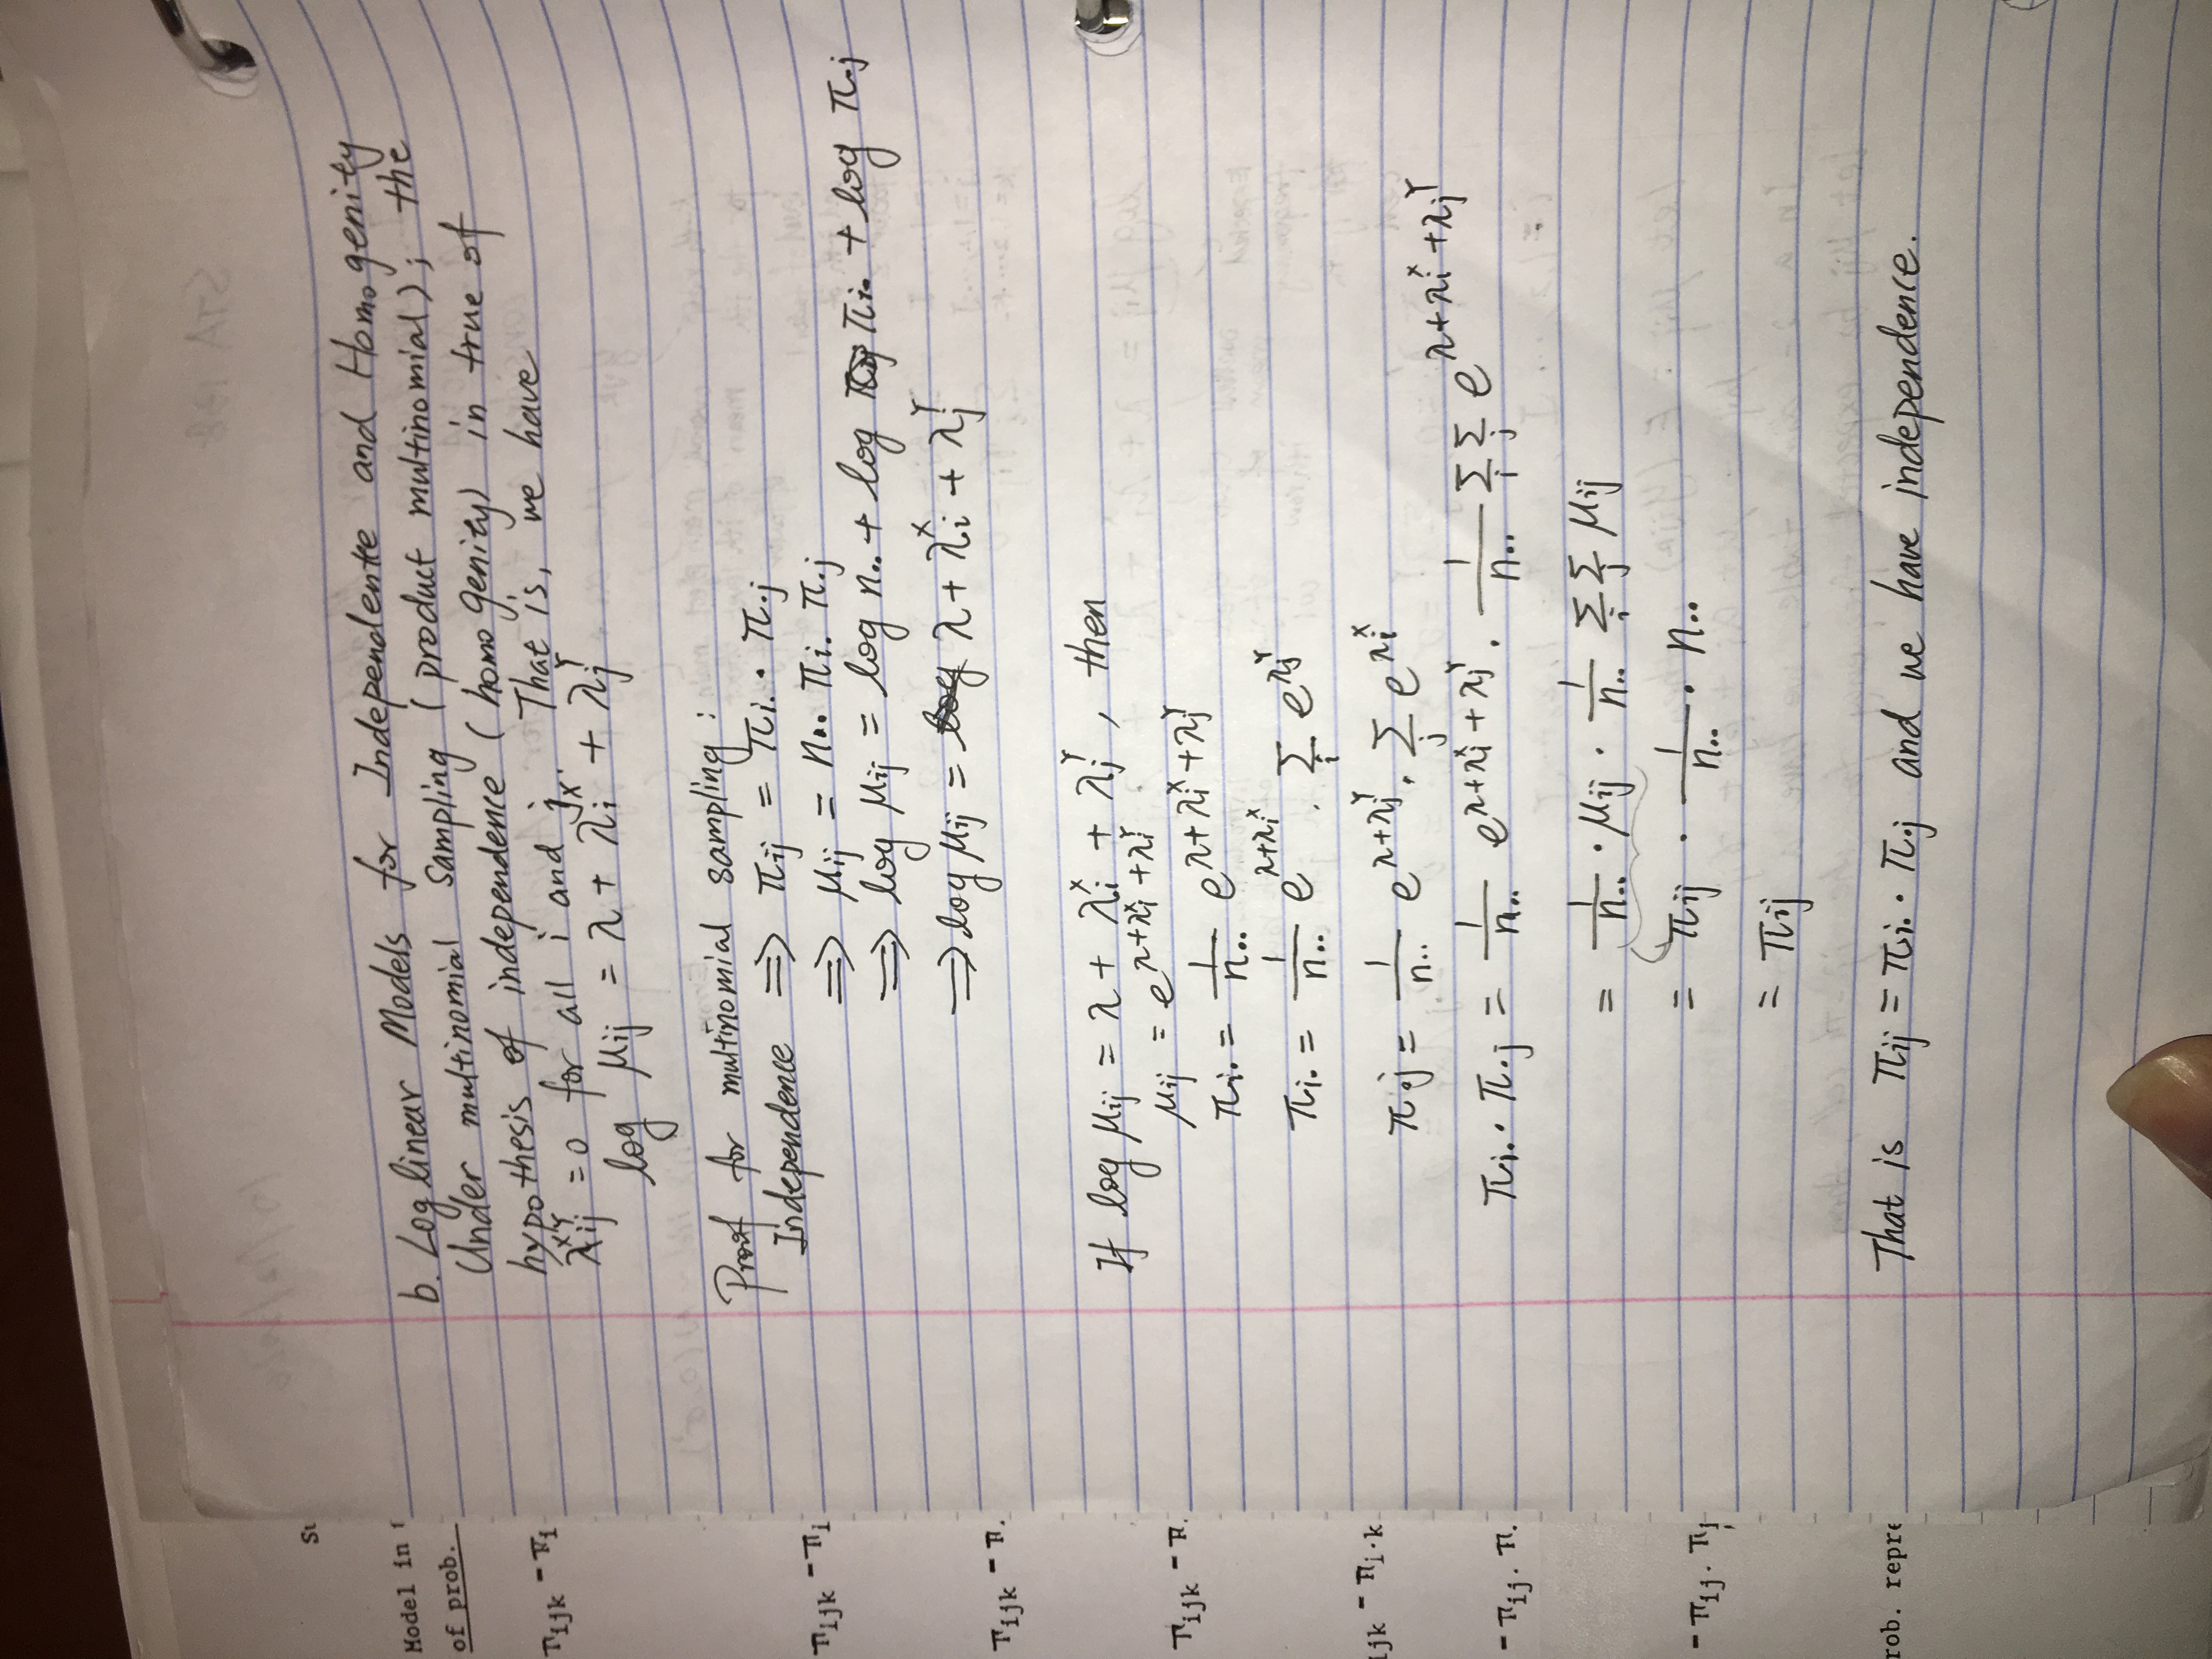 St
Model in
of prob.
πijk - πi
πijk - πi
πijk - π.
πijk - π.
ijk - πi.k
- πij. π.
- πij. πj
rob. repre
b. Log linear Models for Independentte and Homogenity
Under multinomial sampling (product multinomial); the
hypothesis of independence (homogenity) in true of
λij^XY = 0 for all i and j. That is, we have
log μij = λ + λi^X + λj^Y
Proof for multinomial sampling :
Independence ⟹ πij = πi. · π.j
⟹ μij = n.. πi. π.j
⟹ log μij = log n.. + log πi. + log π.j
⟹ log μij = λ + λi^X + λj^Y
If log μij = λ + λi^X + λj^Y , then
μij = e^(λ+λi^X+λj^Y)
πi. = 1/n.. e^(λ+λi^X+λj^Y)
πi. = 1/n.. e^(λ+λi^X) · Σi e^(λj^Y)
π.j = 1/n.. e^(λ+λj^Y) · Σj e^(λi^X)
πi. · π.j = 1/n.. e^(λ+λi^X+λj^Y) · 1/n.. Σi Σj e^(λ+λi^X+λj^Y)
= 1/n.. · μij · 1/n.. Σi Σj μij
= πij · 1/n.. · n..
= πij
That is πij = πi. · π.j and we have independence.